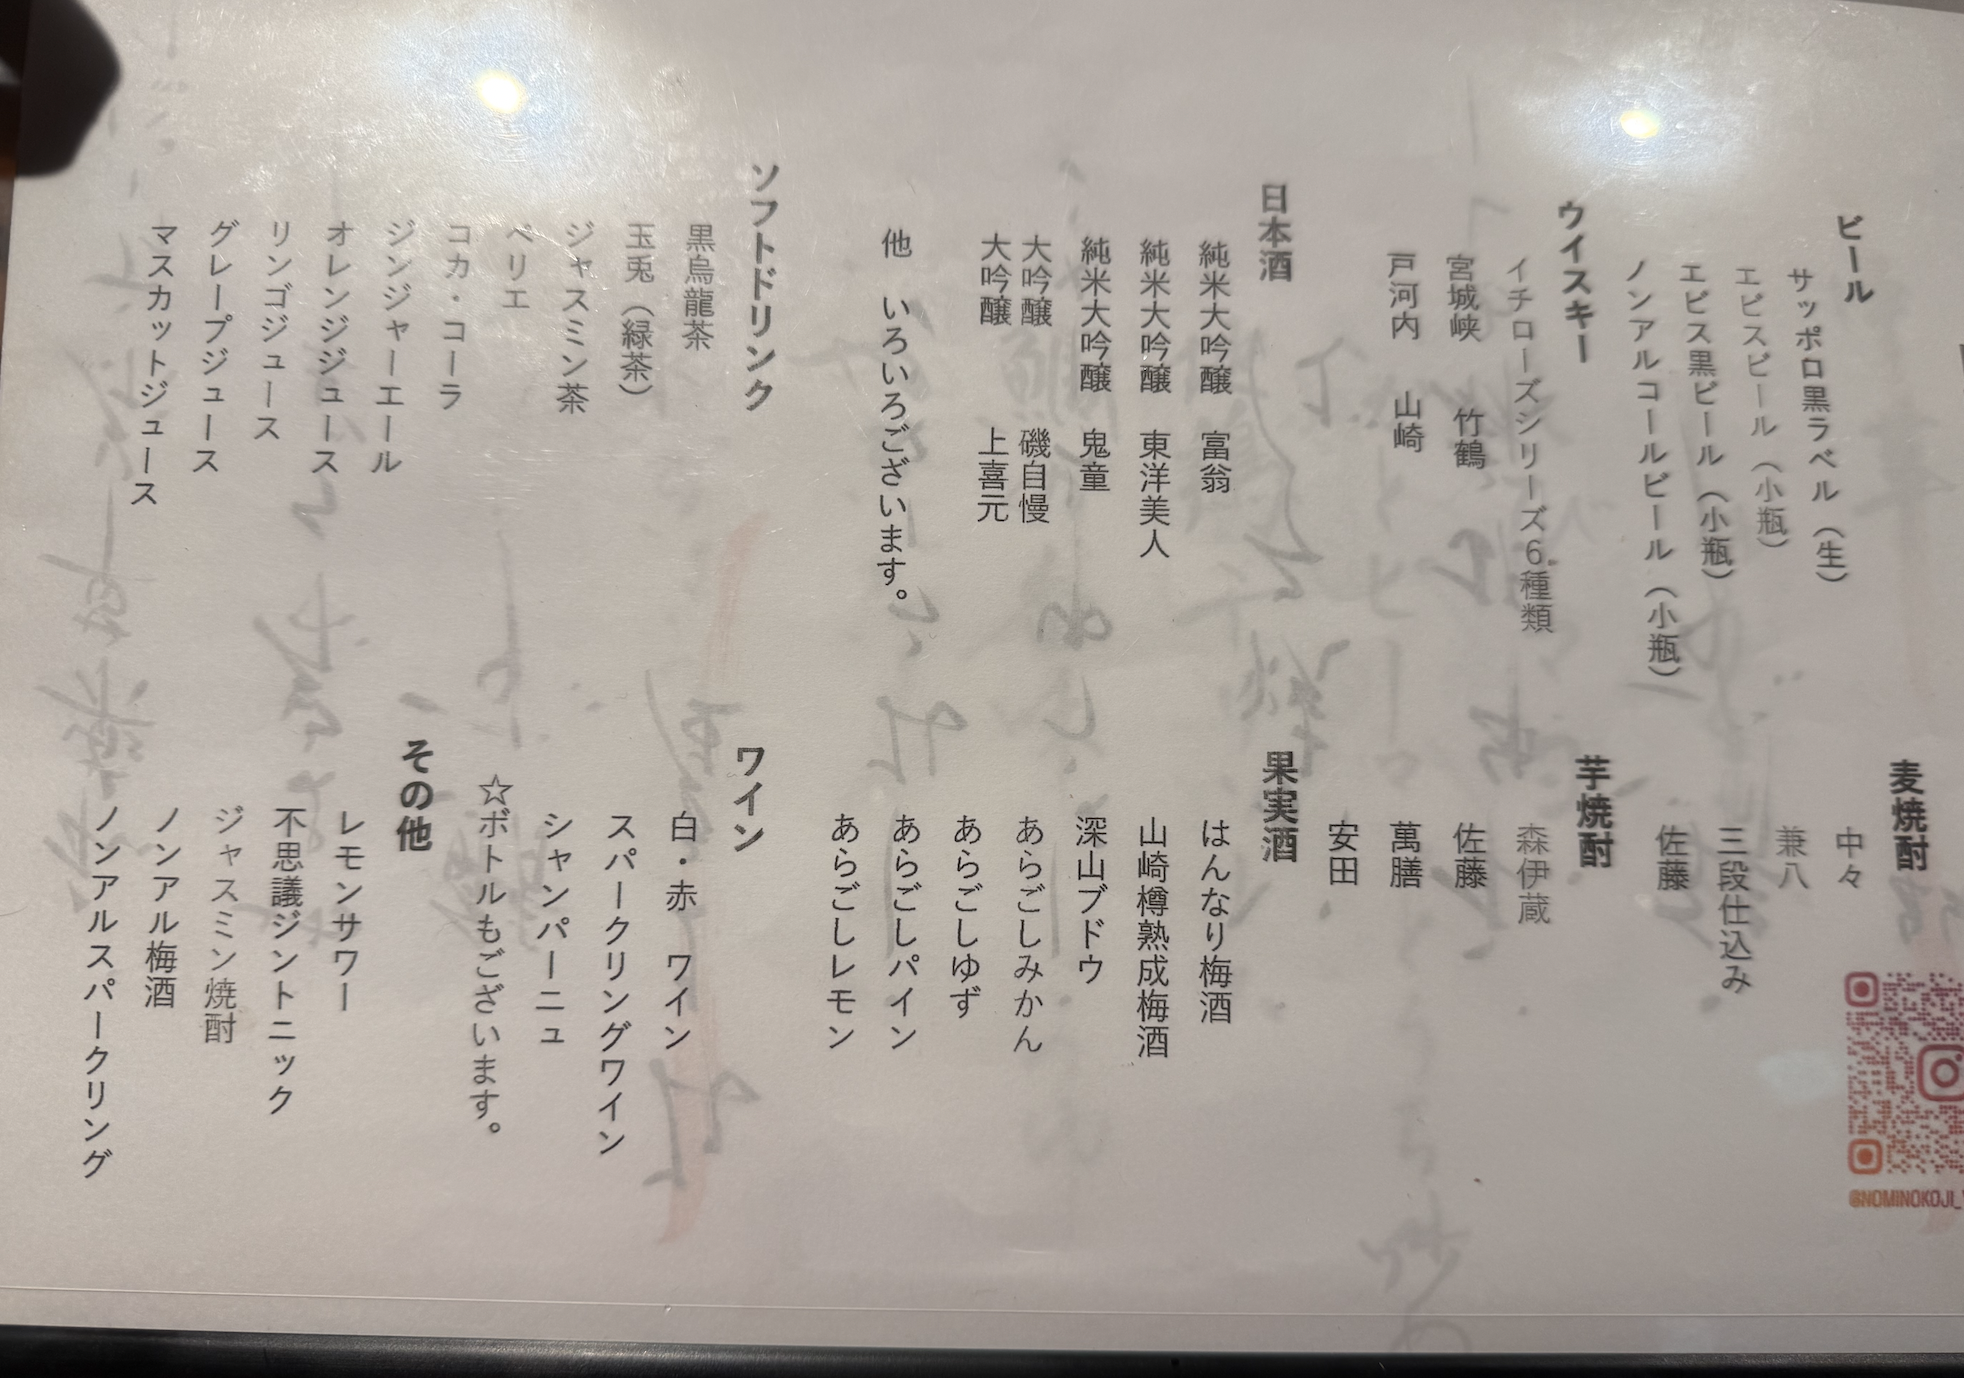 ビール
サッポロ黒ラベル（生）
エビスビール（小瓶）
エビス黒ビール（小瓶）
ノンアルコールビール（小瓶）
ウイスキー
イチローズシリーズ6種類
宮城峡　竹鶴
戸河内　山崎
日本酒
純米大吟醸　富翁
純米大吟醸　東洋美人
純米大吟醸　鬼童
大吟醸　磯自慢
大吟醸　上喜元
他　いろいろございます。
ソフトドリンク
黒烏龍茶
玉兎（緑茶）
ジャスミン茶
ペリエ
コカ・コーラ
ジンジャーエール
オレンジジュース
リンゴジュース
グレープジュース
マスカットジュース
麦焼酎
中々
兼八
三段仕込み
佐藤
芋焼酎
森伊蔵
佐藤
萬膳
安田
果実酒
はんなり梅酒
山崎樽熟成梅酒
深山ブドウ
あらごしみかん
あらごしゆず
あらごしパイン
あらごしレモン
ワイン
白・赤　ワイン
スパークリングワイン
シャンパーニュ
☆ボトルもございます。
その他
レモンサワー
不思議ジントニック
ジャスミン焼酎
ノンアル梅酒
ノンアルスパークリング
@NOMINOKOJI_